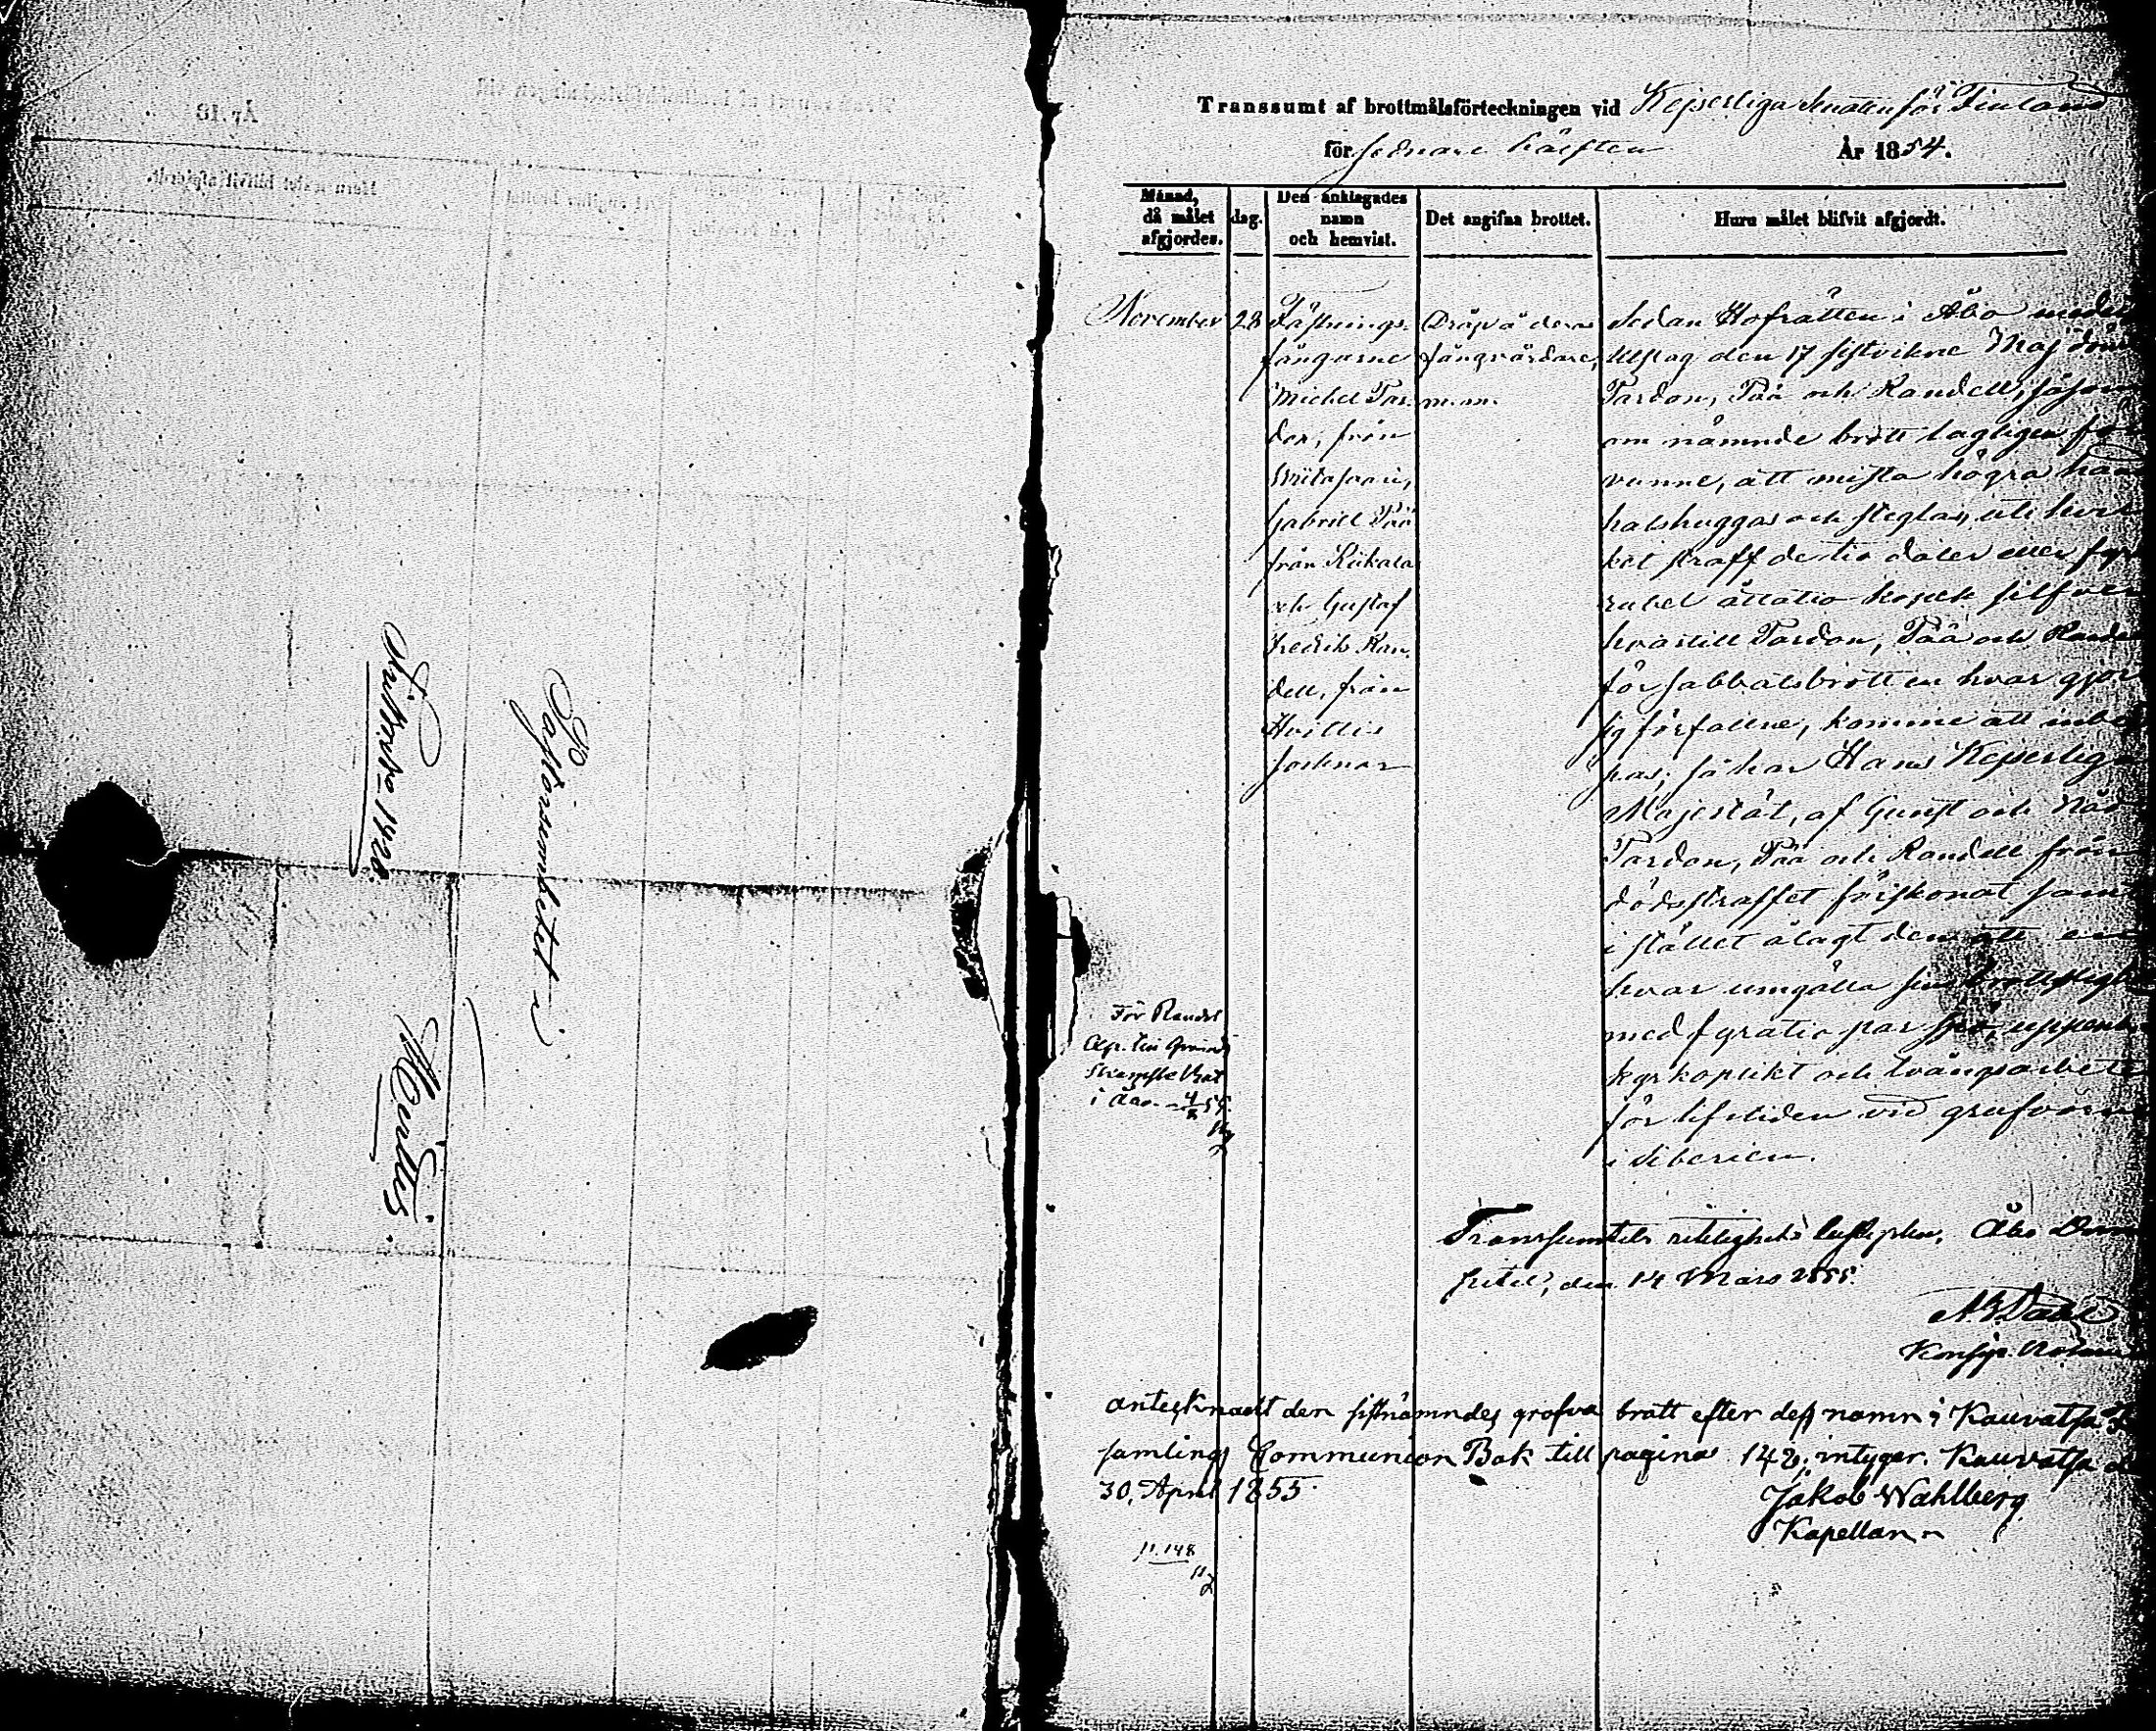 Pastorsembetet i
Hvittis
Transsumt af brottmålsförteckningen vid Kejserliga Senaten för Finland
för sednare hälften År 1854.
Månad, då målet afgjordes.
dag.
Den anklagades namn och hemvist.
Det angifna brottet.
Huru målet blifvit afgjordt.
November
28
Fästnings-
fångarne
Michel Tar-
don, från
Gabriel Pää
från Kiikala
och Gustaf
Fredrik Ran-
dell, från
Hvittis
socknar
Dråp å deras
fångvårdare,
m.m.
Sedan Hofrätten i Åbo
utslag den 17 sistvikne Maj
Tardon, Pää och Randell, såsom
om nämnde brott lagligen för-
vunne, att mista högra hand
halshuggas och steglas, uti hvil-
ket straff de tio daler eller fyra
rubel åttatio kopek silfver
hvartill Tardon, Pää och Randell
för sabbatsbrott en hvar gjort
sig förfallne, komme att inbe-
pas; så har Hans Kejserliga
Majestät, af Gunst och Nåd
Tardon, Pää och Randell från
dödsstraffet förskonat samt
i stället ålagt dem att en
hvar umgälla sin brottslighet
med fyratio par spö, uppenbar
kyrkoplikt och tvångsarbete
för lifstiden vid grufvorna
i Siberien.
För Randel
i Åbo
Transsumtets riktighet Åbo Dom-
den 14 Mars 1855.
antecknadt den sistnämndes grofva brott efter dess namn i Kauvatsa
samlings Communion Bok till pagina 148; intygar. Kauvatsa
30. April 1855.
Jakob Wahlberg
Kapellan
p. 148